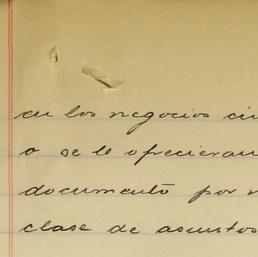 en los negocios ci
o se le ofrecieran
documento por
clase de asuntos